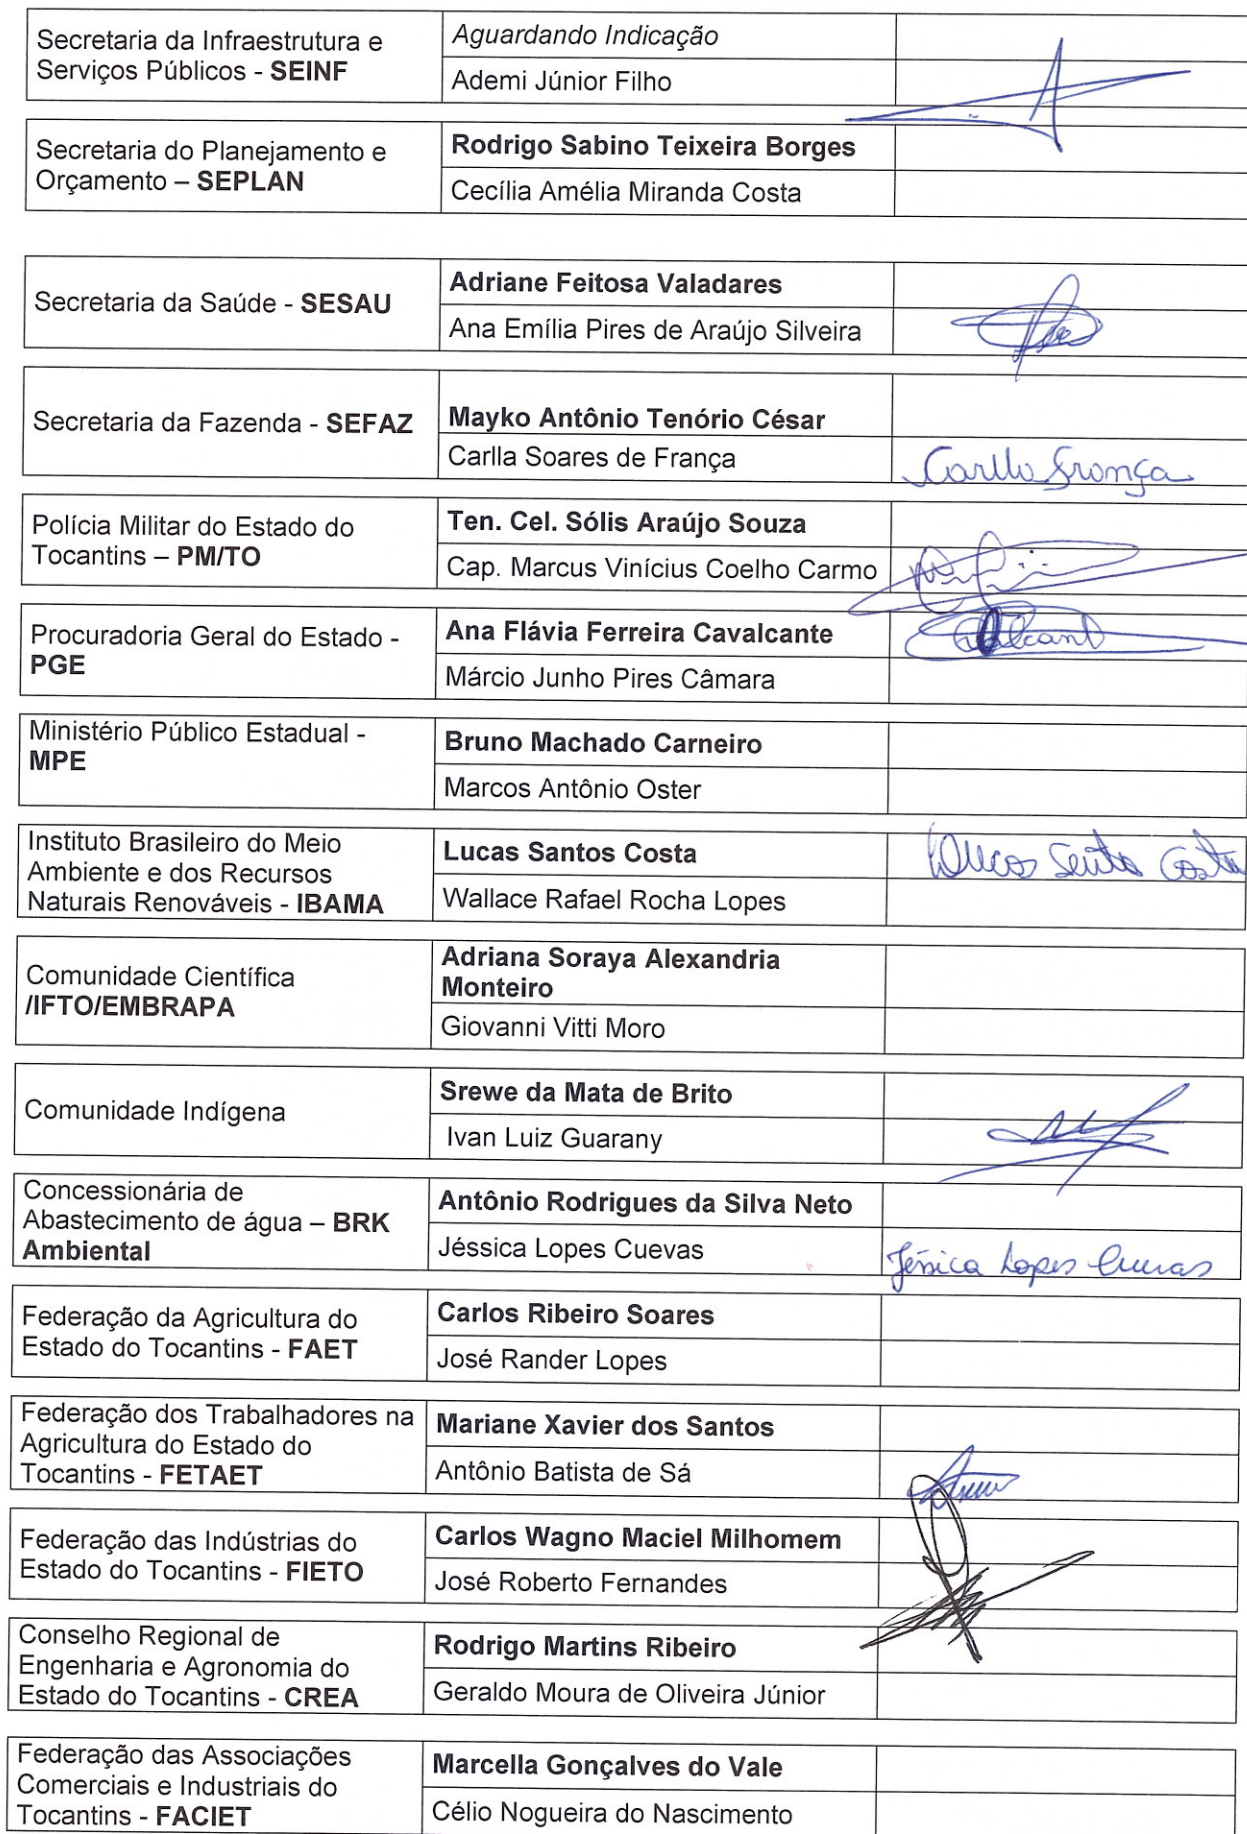 Secretaria da Infraestrutura e
Serviços Públicos - SEINF
Aguardando Indicação
Ademi Júnior Filho
Secretaria do Planejamento e
Orçamento – SEPLAN
Rodrigo Sabino Teixeira Borges
Cecília Amélia Miranda Costa
Secretaria da Saúde - SESAU
Adriane Feitosa Valadares
Ana Emília Pires de Araújo Silveira
Secretaria da Fazenda - SEFAZ
Mayko Antônio Tenório César
Carlla Soares de França
Carlla França
Polícia Militar do Estado do
Tocantins – PM/TO
Ten. Cel. Sólis Araújo Souza
Cap. Marcus Vinícius Coelho Carmo
Procuradoria Geral do Estado -
PGE
Ana Flávia Ferreira Cavalcante
Márcio Junho Pires Câmara
Ministério Público Estadual -
MPE
Bruno Machado Carneiro
Marcos Antônio Oster
Instituto Brasileiro do Meio
Ambiente e dos Recursos
Naturais Renováveis - IBAMA
Lucas Santos Costa
Lucas Santos Costa
Wallace Rafael Rocha Lopes
Comunidade Científica
/IFTO/EMBRAPA
Adriana Soraya Alexandria
Monteiro
Giovanni Vitti Moro
Comunidade Indígena
Srewe da Mata de Brito
Ivan Luiz Guarany
Concessionária de
Abastecimento de água – BRK
Ambiental
Antônio Rodrigues da Silva Neto
Jéssica Lopes Cuevas
Jéssica Lopes Cuevas
Federação da Agricultura do
Estado do Tocantins - FAET
Carlos Ribeiro Soares
José Rander Lopes
Federação dos Trabalhadores na
Agricultura do Estado do
Tocantins - FETAET
Mariane Xavier dos Santos
Antônio Batista de Sá
Federação das Indústrias do
Estado do Tocantins - FIETO
Carlos Wagno Maciel Milhomem
José Roberto Fernandes
Conselho Regional de
Engenharia e Agronomia do
Estado do Tocantins - CREA
Rodrigo Martins Ribeiro
Geraldo Moura de Oliveira Júnior
Federação das Associações
Comerciais e Industriais do
Tocantins - FACIET
Marcella Gonçalves do Vale
Célio Nogueira do Nascimento